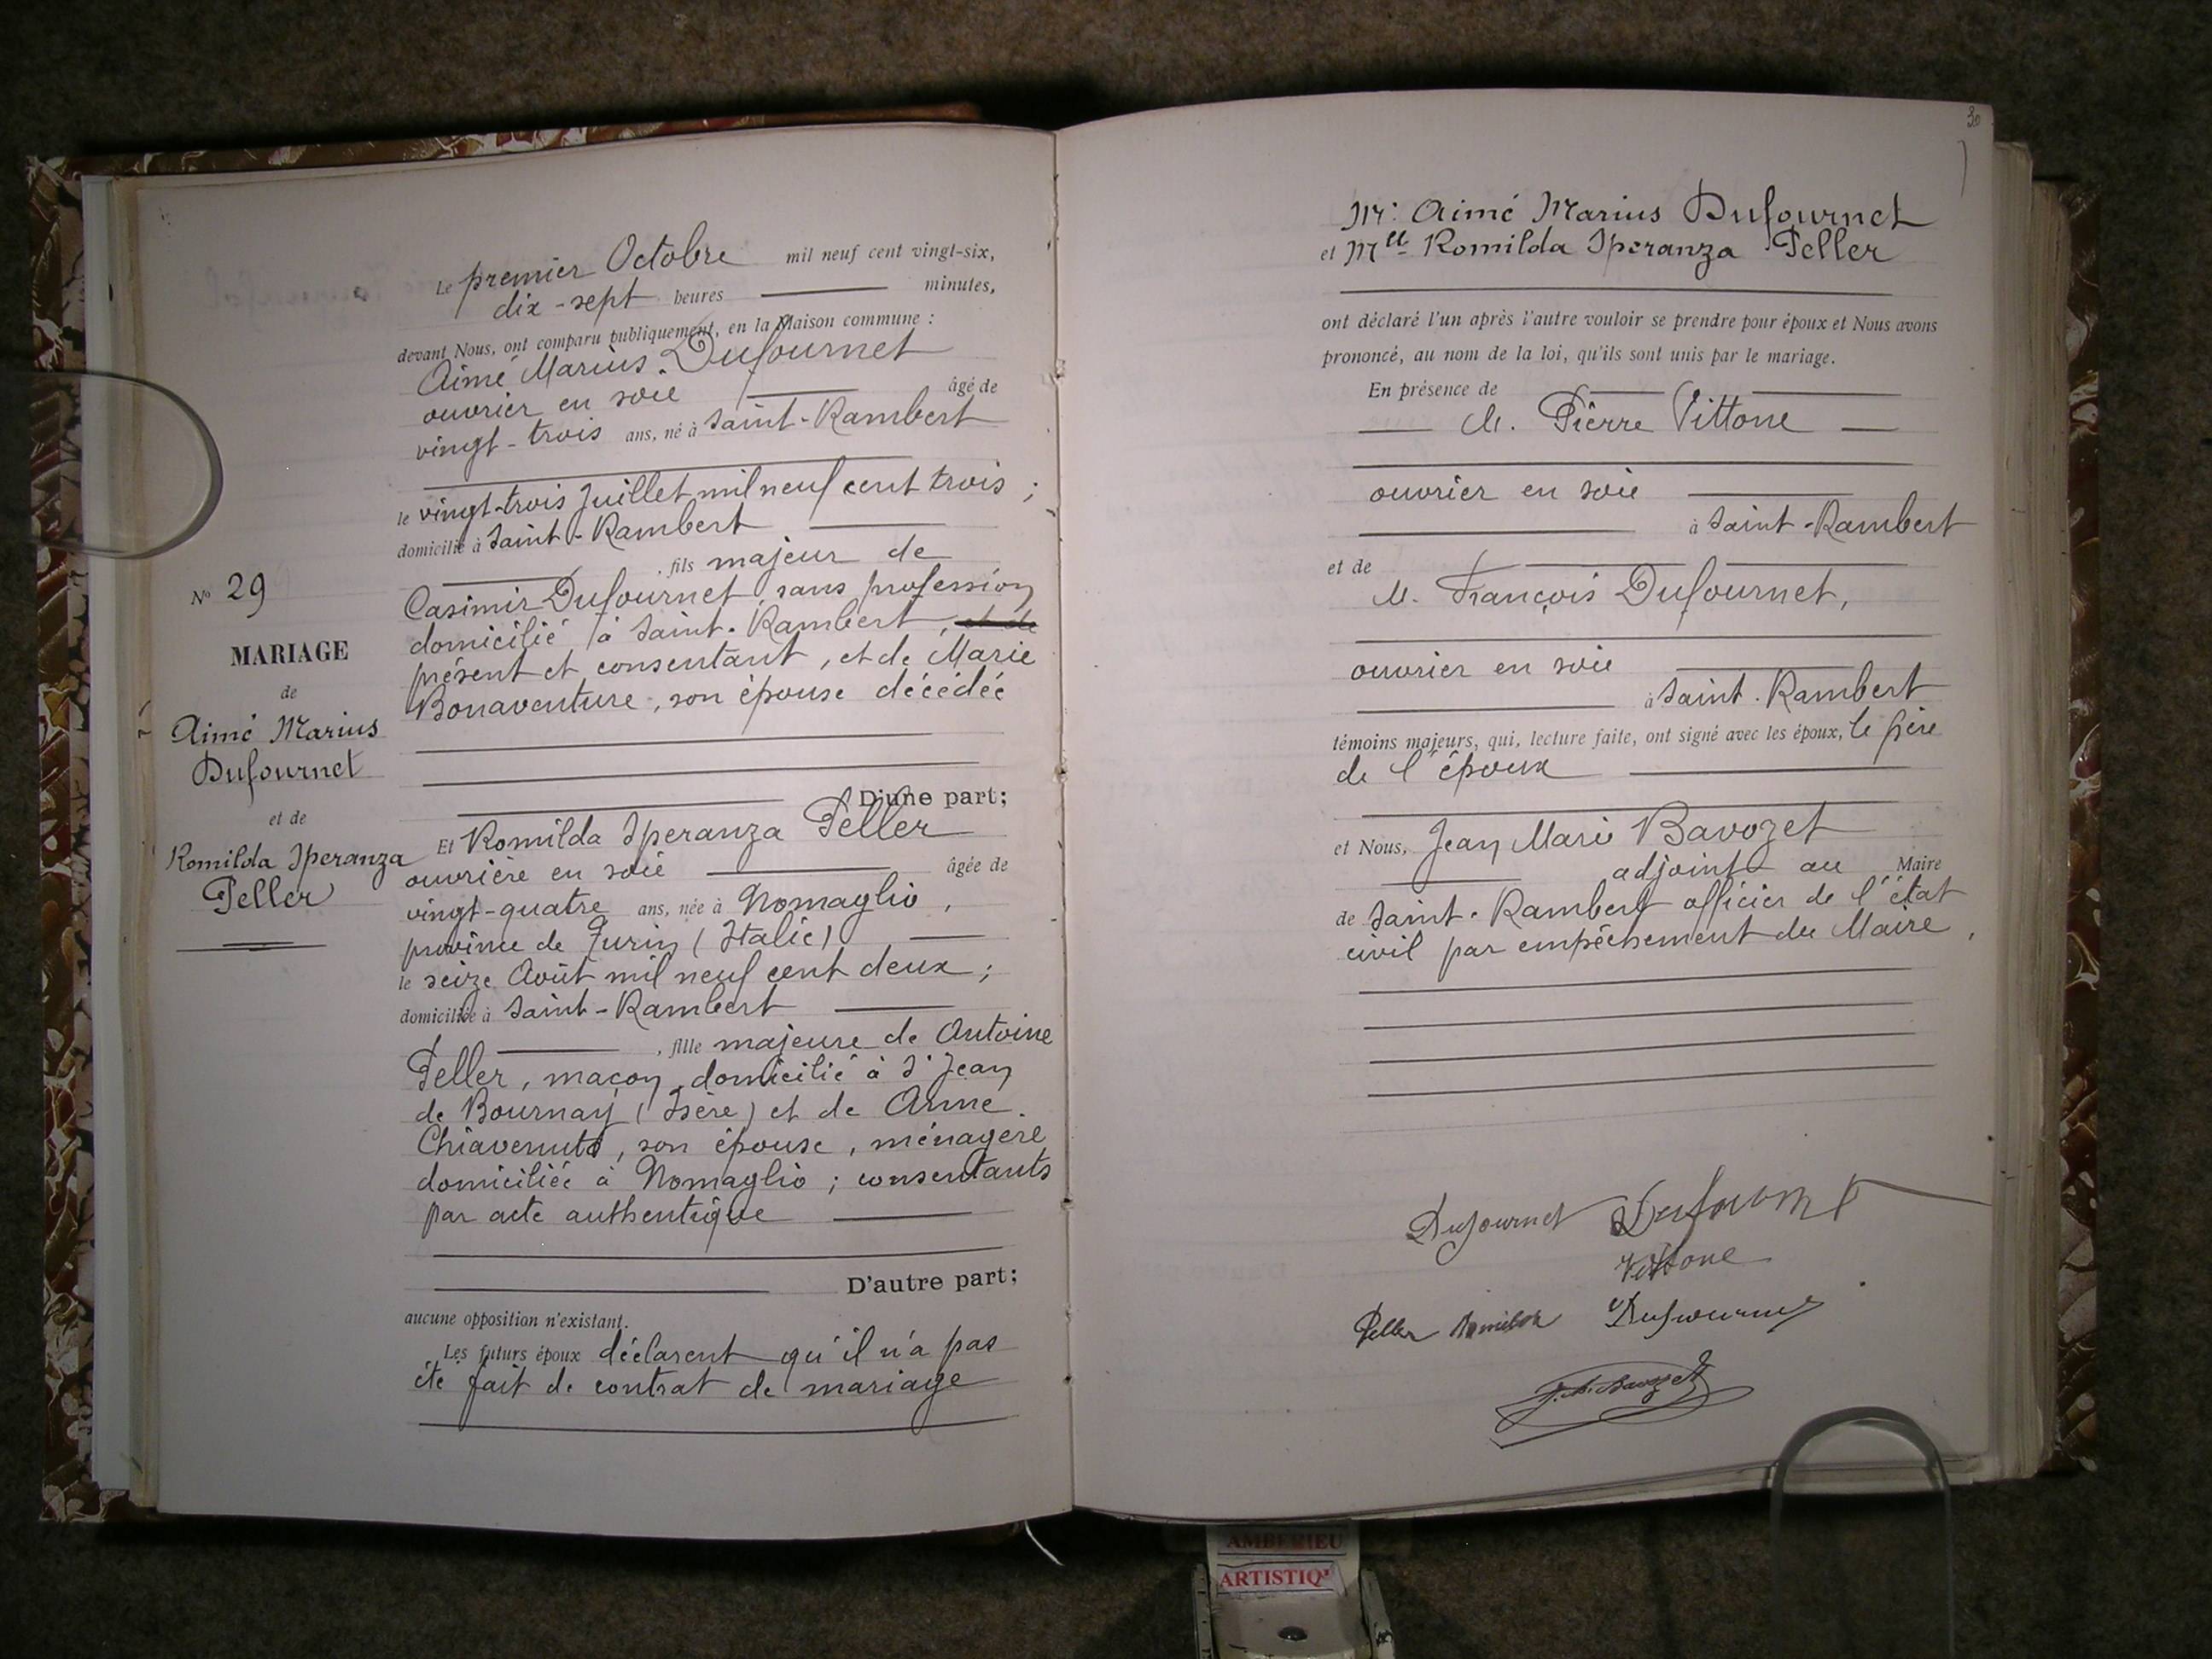 Le premier Octobre mil neuf cent vingt-six,
dix-sept heures minutes,
devant Nous, ont comparu publiquement, en la Maison commune :
Aimé Marius Dufournet
ouvrier en soie âgé de
vingt-trois ans, né à Saint-Rambert
le vingt-trois Juillet mil neuf cent trois ;
domicilié à Saint-Rambert
, fils majeur de
Casimir Dufournet, sans profession
domicilié à Saint-Rambert, et de
présent et consentant, et de Marie
Bonaventure, son épouse décédée
D'une part;
Et Romilda Speranza Peller
ouvrière en soie âgée de
vingt-quatre ans, née à Nomaglio,
province de Turin (Italie)
le seize Août mil neuf cent deux ;
domiciliée à Saint-Rambert
, fille majeure de Antoine
Peller, maçon, domicilié à St Jean
de Bournay (Isère) et de Anne
Chiavenuto, son épouse, ménagère
domiciliée à Nomaglio ; consentants
par acte authentique
D'autre part;
aucune opposition n'existant.
Les futurs époux déclarent qu'il n'a pas
été fait de contrat de mariage
No 29
MARIAGE
de
Aimé Marius
Dufournet
et de
Romilda Speranza
Peller
30
Mr Aimé Marius Dufournet
et Mlle Romilda Speranza Peller
ont déclaré l'un après l'autre vouloir se prendre pour époux et Nous avons
prononcé, au nom de la loi, qu'ils sont unis par le mariage.
En présence de
M. Pierre Vittone
ouvrier en soie
à Saint-Rambert
et de
M. François Dufournet,
ouvrier en soie
à Saint-Rambert
témoins majeurs, qui, lecture faite, ont signé avec les époux, le père
de l'époux
et Nous, Jean Marie Bavozet
adjoint au Maire
de Saint-Rambert officier de l'état
civil par empêchement du Maire,
Dufournet Dufournet
Vittone
Peller Romilda Dufournet
J. M. Bavozet
AMBERIEU
ARTISTIQ